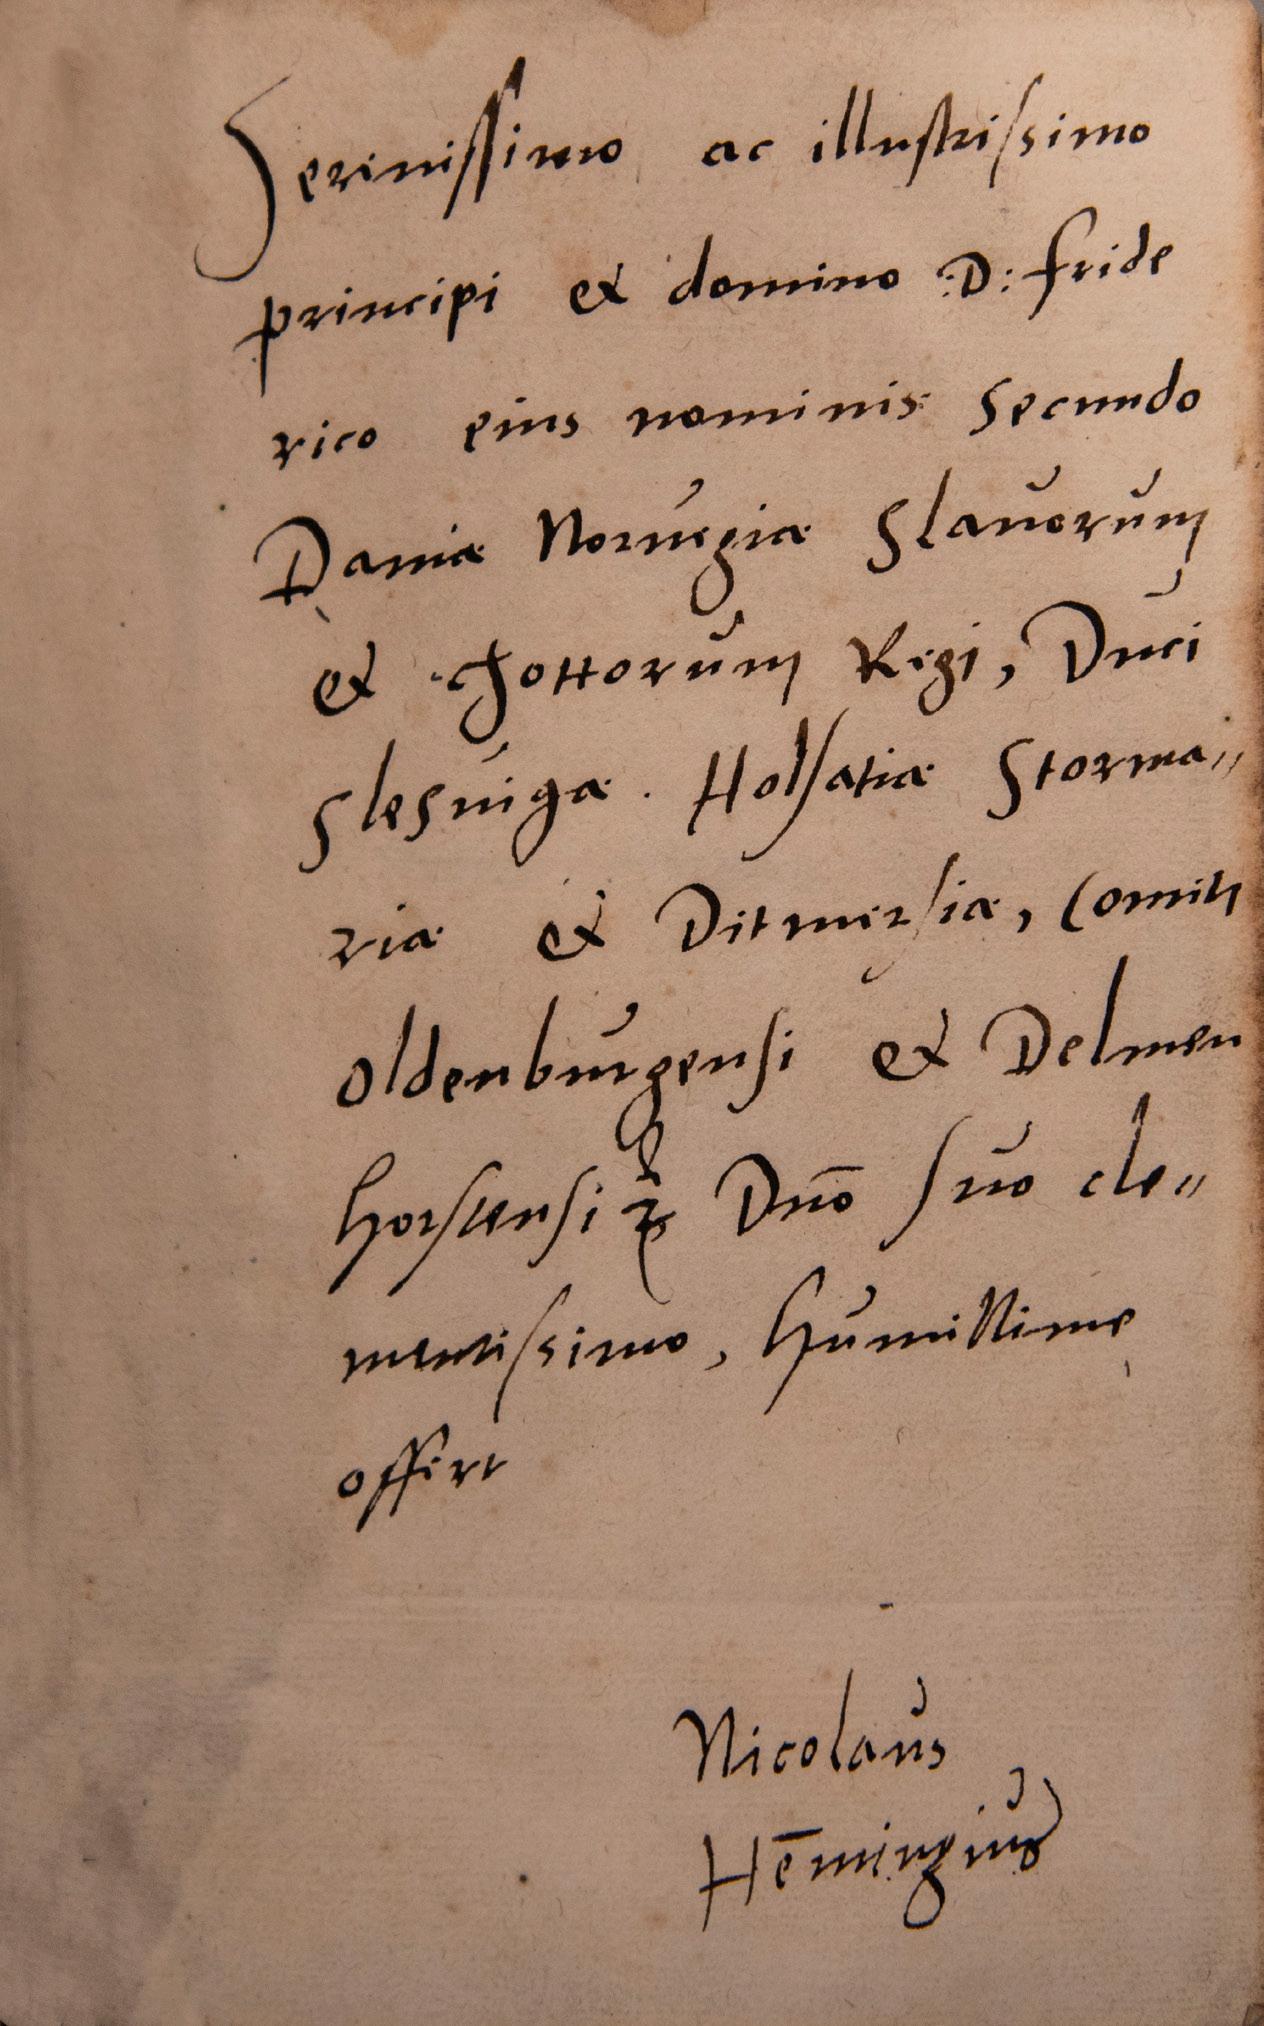 Serenissimo ac illustrissimo
principi et domino :D: fride
rico eius nominis Secundo
Daniæ Noruegiæ Slauorum
et Gottorum Regi, Duci
Slesuigæ. Holsatiæ Storma〃
riæ et Ditmersiæ, Comiti
Oldenburgensi et Delmen
horstensi Dn̄o suo cle〃
mentissimo, humillime
offert
Nicolaus
Hēmingius